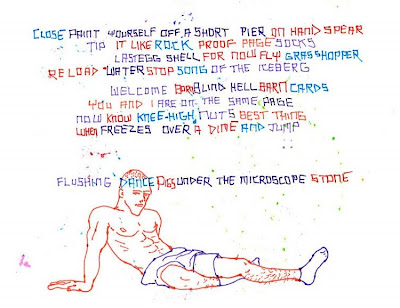 CLOSE PAINT YOURSELF OFF A SHORT PIER ON HAND SPEAR
TIP IT LIKE ROCK PROOF PAGE SOCKS
LAST EGG SHELL FOR NOW FLY GRASSHOPPER
RELOAD WATER STOP SONG OF THE ICEBERG
WELCOME BARN BLIND HELL BARN CARDS
YOU AND I ARE ON THE SAME PAGE
NOW KNOW KNEE-HIGH NUTS BEST THING
WHEN FREEZES OVER A DIME AND JUMP
FLUSHING DANCE PIGS UNDER THE MICROSCOPE STONE